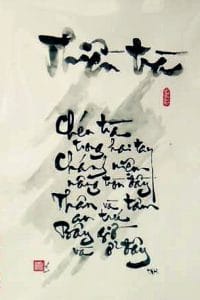 Thiền trà
Chén trà
trong hai tay
Chánh niệm
nâng tròn đầy
Thân và tâm
an trú
Bây giờ
và ở đây